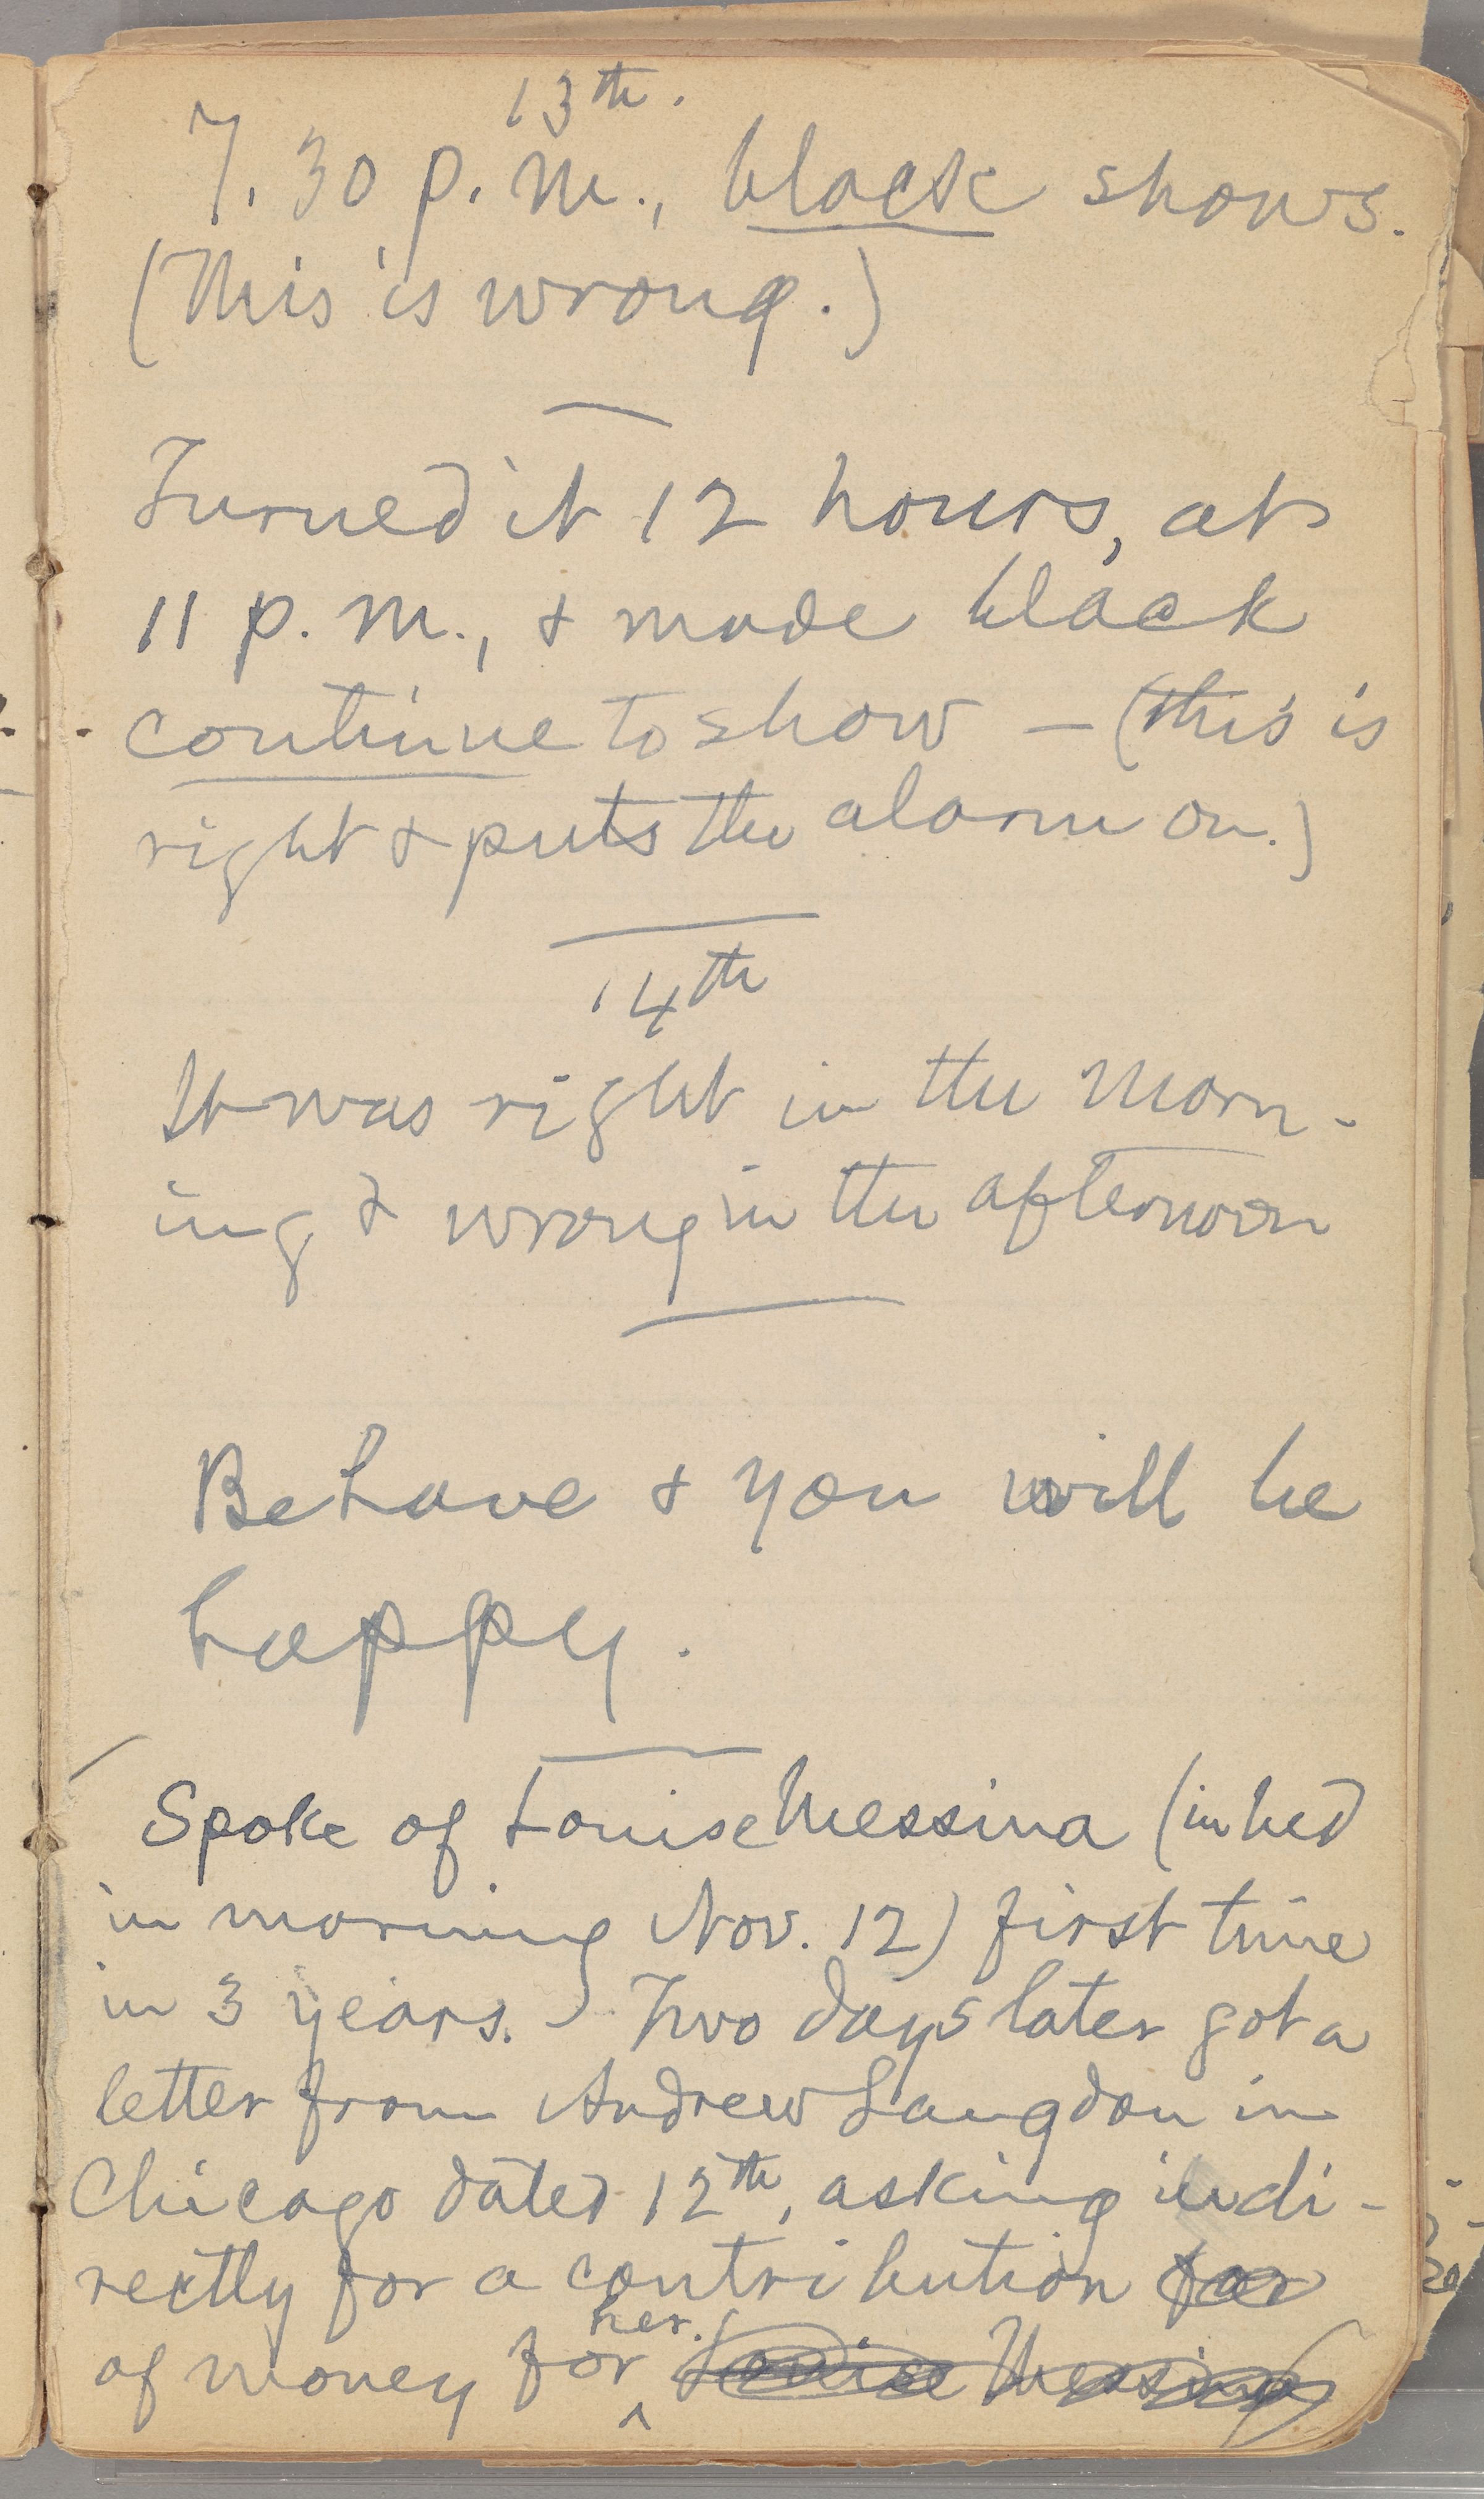 13th.
7.30 p.m., black shows.
(This is wrong.)
Turned it 12 hours, at
11 p.m., & made black
continue to show — (this is
right & puts the alarm on.)
14th
It was right in the morn-
ing & wrong in the afternoon
Behave & you will be
happy.
Spoke of Louise Messina (in bed
in morning Nov. 12) first time
in 3 years. Two days later got a
letter from Andrew Langdon in
Chicago dated 12th, asking indi-
rectly for a contribution for
of money for her. Louise Messina